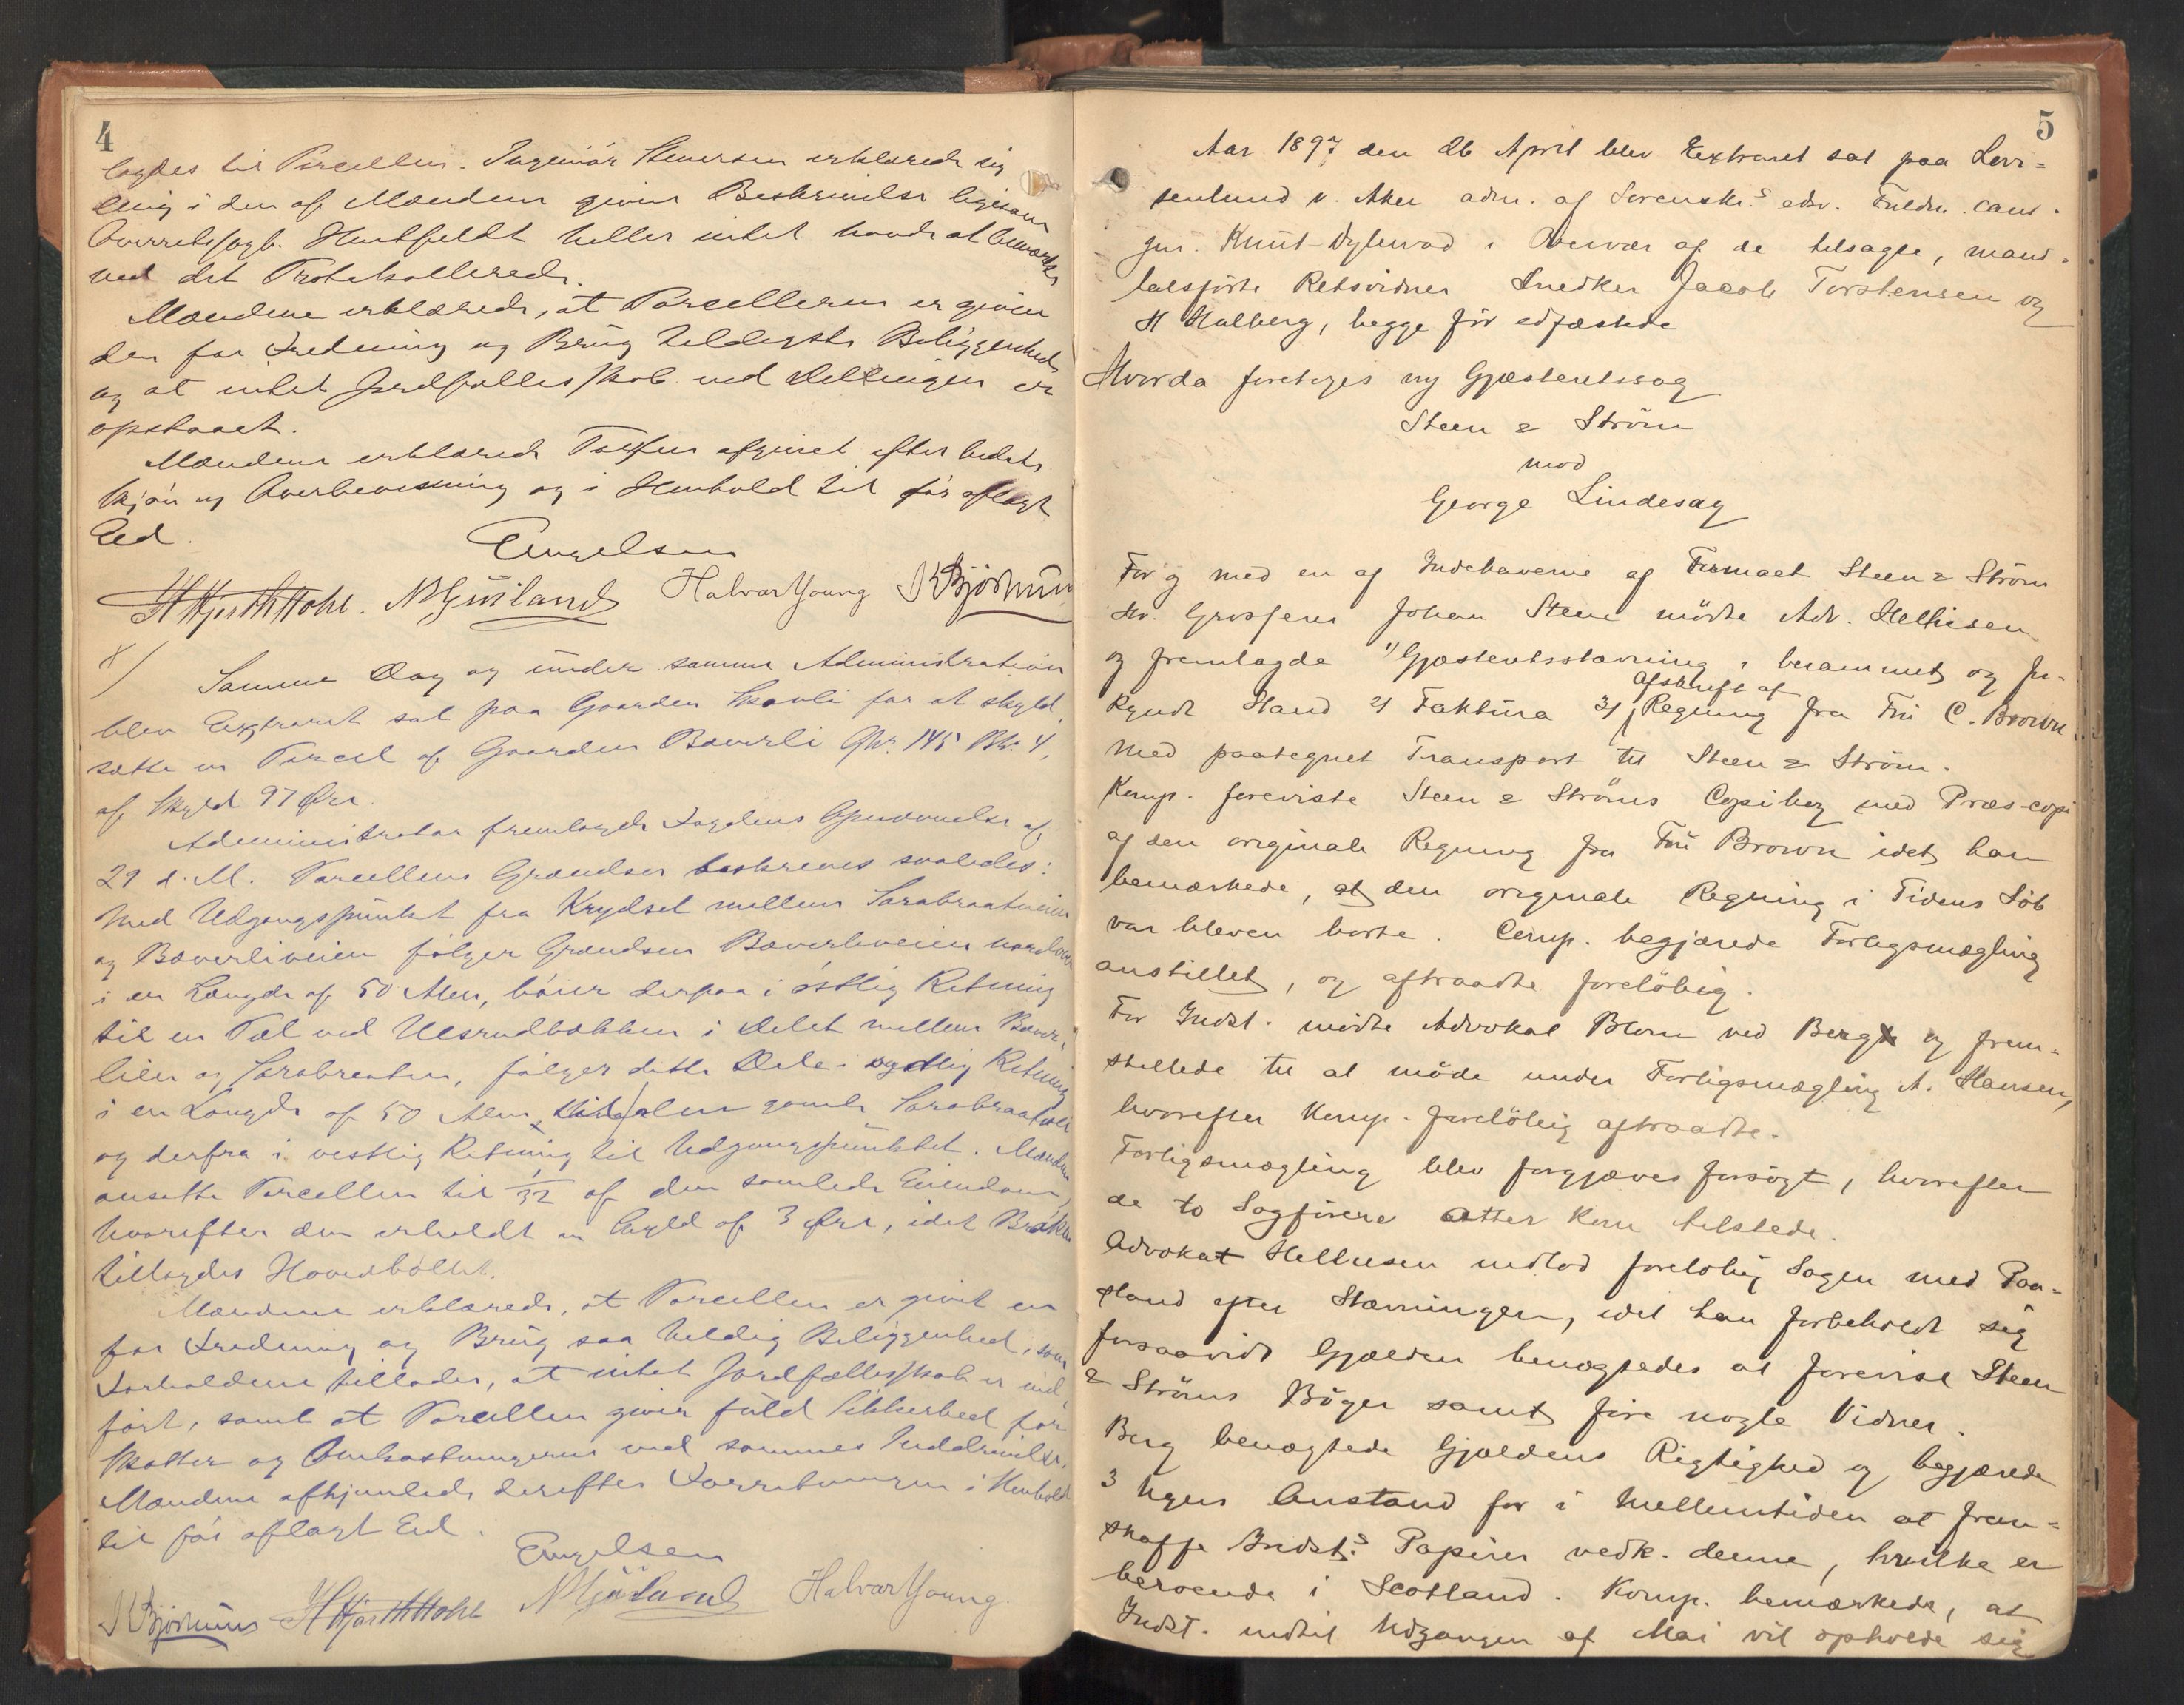 4
lagdes til Parcellen. Ingeniør Stenersen erklærede sig
enig i den af Mændene givne Beskrivelse ligesom
Overretssagf. Huitfeldt heller intet havde at bemærke
ved det Protokollerede.
Mændene erklærede, at Parcellerne er given
den for Fredning og Brug heldigste Beliggenhed
og at intet Jordfællesskab ved Delingen er
opstaaet.
Mændene erklærede Taxten afgivet efter bedste
Skjøn og Overbevisning og i Henhold til før aflagt
Ed.
Engelsen
Halvar Young
Samme Dag og under samme Administration
blev Extraret sat paa Gaarden Skavli for at skyld,
sætte en Parcel af Gaarden Bæverli Gr. 145 Br. 4,
af Skyld 97 Øre.
Administrator fremlagde Fogdens Opnævnelse af
29 d. M. Parcellens Grændser beskrives saaledes:
Med Udgangspunkt fra Krydset mellem Sarabraatveien
og Bæverliveien følger Grændsen Bæverliveien nordover
i en Længde af 50 Alen, bøier derpaa i østlig Retning
til en Pæl ved Ulsrudbækken i Delet mellem Bæver-
lien og Sarabraaten, følger dette Dele i sydlig Retning
i en Længde af 50 Alen til den gamle Sarabraatvei
og derfra i vestlig Retning til Udgangspunktet. Mændene
ansatte Parcellen til 1/32 af den samlede Eiendom,
hvorefter den erholdt en Skyld af 3 Øre, idet Brøken
tillagdes Hovedbølet.
Mændene erklærede, at Parcellen er givet en
for Fredning og Brug saa heldig Beliggenhed, som
Forholdene tillader, at intet Jordfællesskab er ind-
ført, samt at Parcellen giver fuld Sikkerhed for
Skatter og Omkostningerne ved sammes Inddrivelse.
Mændene afhjemlede derefter Forretningen i Henhold
til før aflagt Ed.
Engelsen
Halvar Young
5
Aar 1897 den 26 April blev Extraret sat paa Lovi-
senlund v. Aker adm. af Sorenskr.s edsv. Fuldm. cand.
jur. Knut i Overvær af de tilsagte, mand-
talsførte Retsvidner Snedker Jacob Torstensen og
H Halberg, begge før edfæstede
Hvorda foretoges ny Gjæsteretssag
Steen & Strøm
mod
George Lindesay
For og med en af Indehaverne af Firmaet Steen & Strøm
Hr. Grosserer Johan Steen mødte Adv. Helliesen
og fremlagde 1) Gjæsteretsstævning i berammet og for-
kyndt Stand 2) Faktura 3) Afskrift af Regning fra Fru C. Brown
med paategnet Transport til Steen & Strøm.
Komp. foreviste Steen & Strøms Copibog med Præs-copi
af den originale Regning fra Fru Brown idet han
bemærkede, at den originale Regning i Tidens Løb
var bleven borte. Comp. begjærede Forligsmægling
anstillet, og aftraadte foreløbig.
For Indst. mødte Advokat Blom ved Berg og frem-
stillede til at møde under Forligsmægling A. Hansen,
hvorefter Komp. foreløbig aftraadte.
Forligsmægling blev forgjæves forsøgt, hvorefter
de to Sagførere atter kom tilstede.
Advokat Helliesen indlod foreløbig Sagen med Paa-
stand efter Stævningen, idet han forbeholdt sig
forsaavidt Gjælden benægtedes at forevise Steen
& Strøms Bøger samt føre nogle Vidner.
Berg benægtede Gjældens Rigtighed og begjærede
3 Ugers Anstand for i Mellemtiden at frem-
skaffe Indst.s Papirer vedk. denne, hvilke er
beroende i Scotland. Komp. bemærkede, at
Indst. indtil Udgangen af Mai vil opholde sig